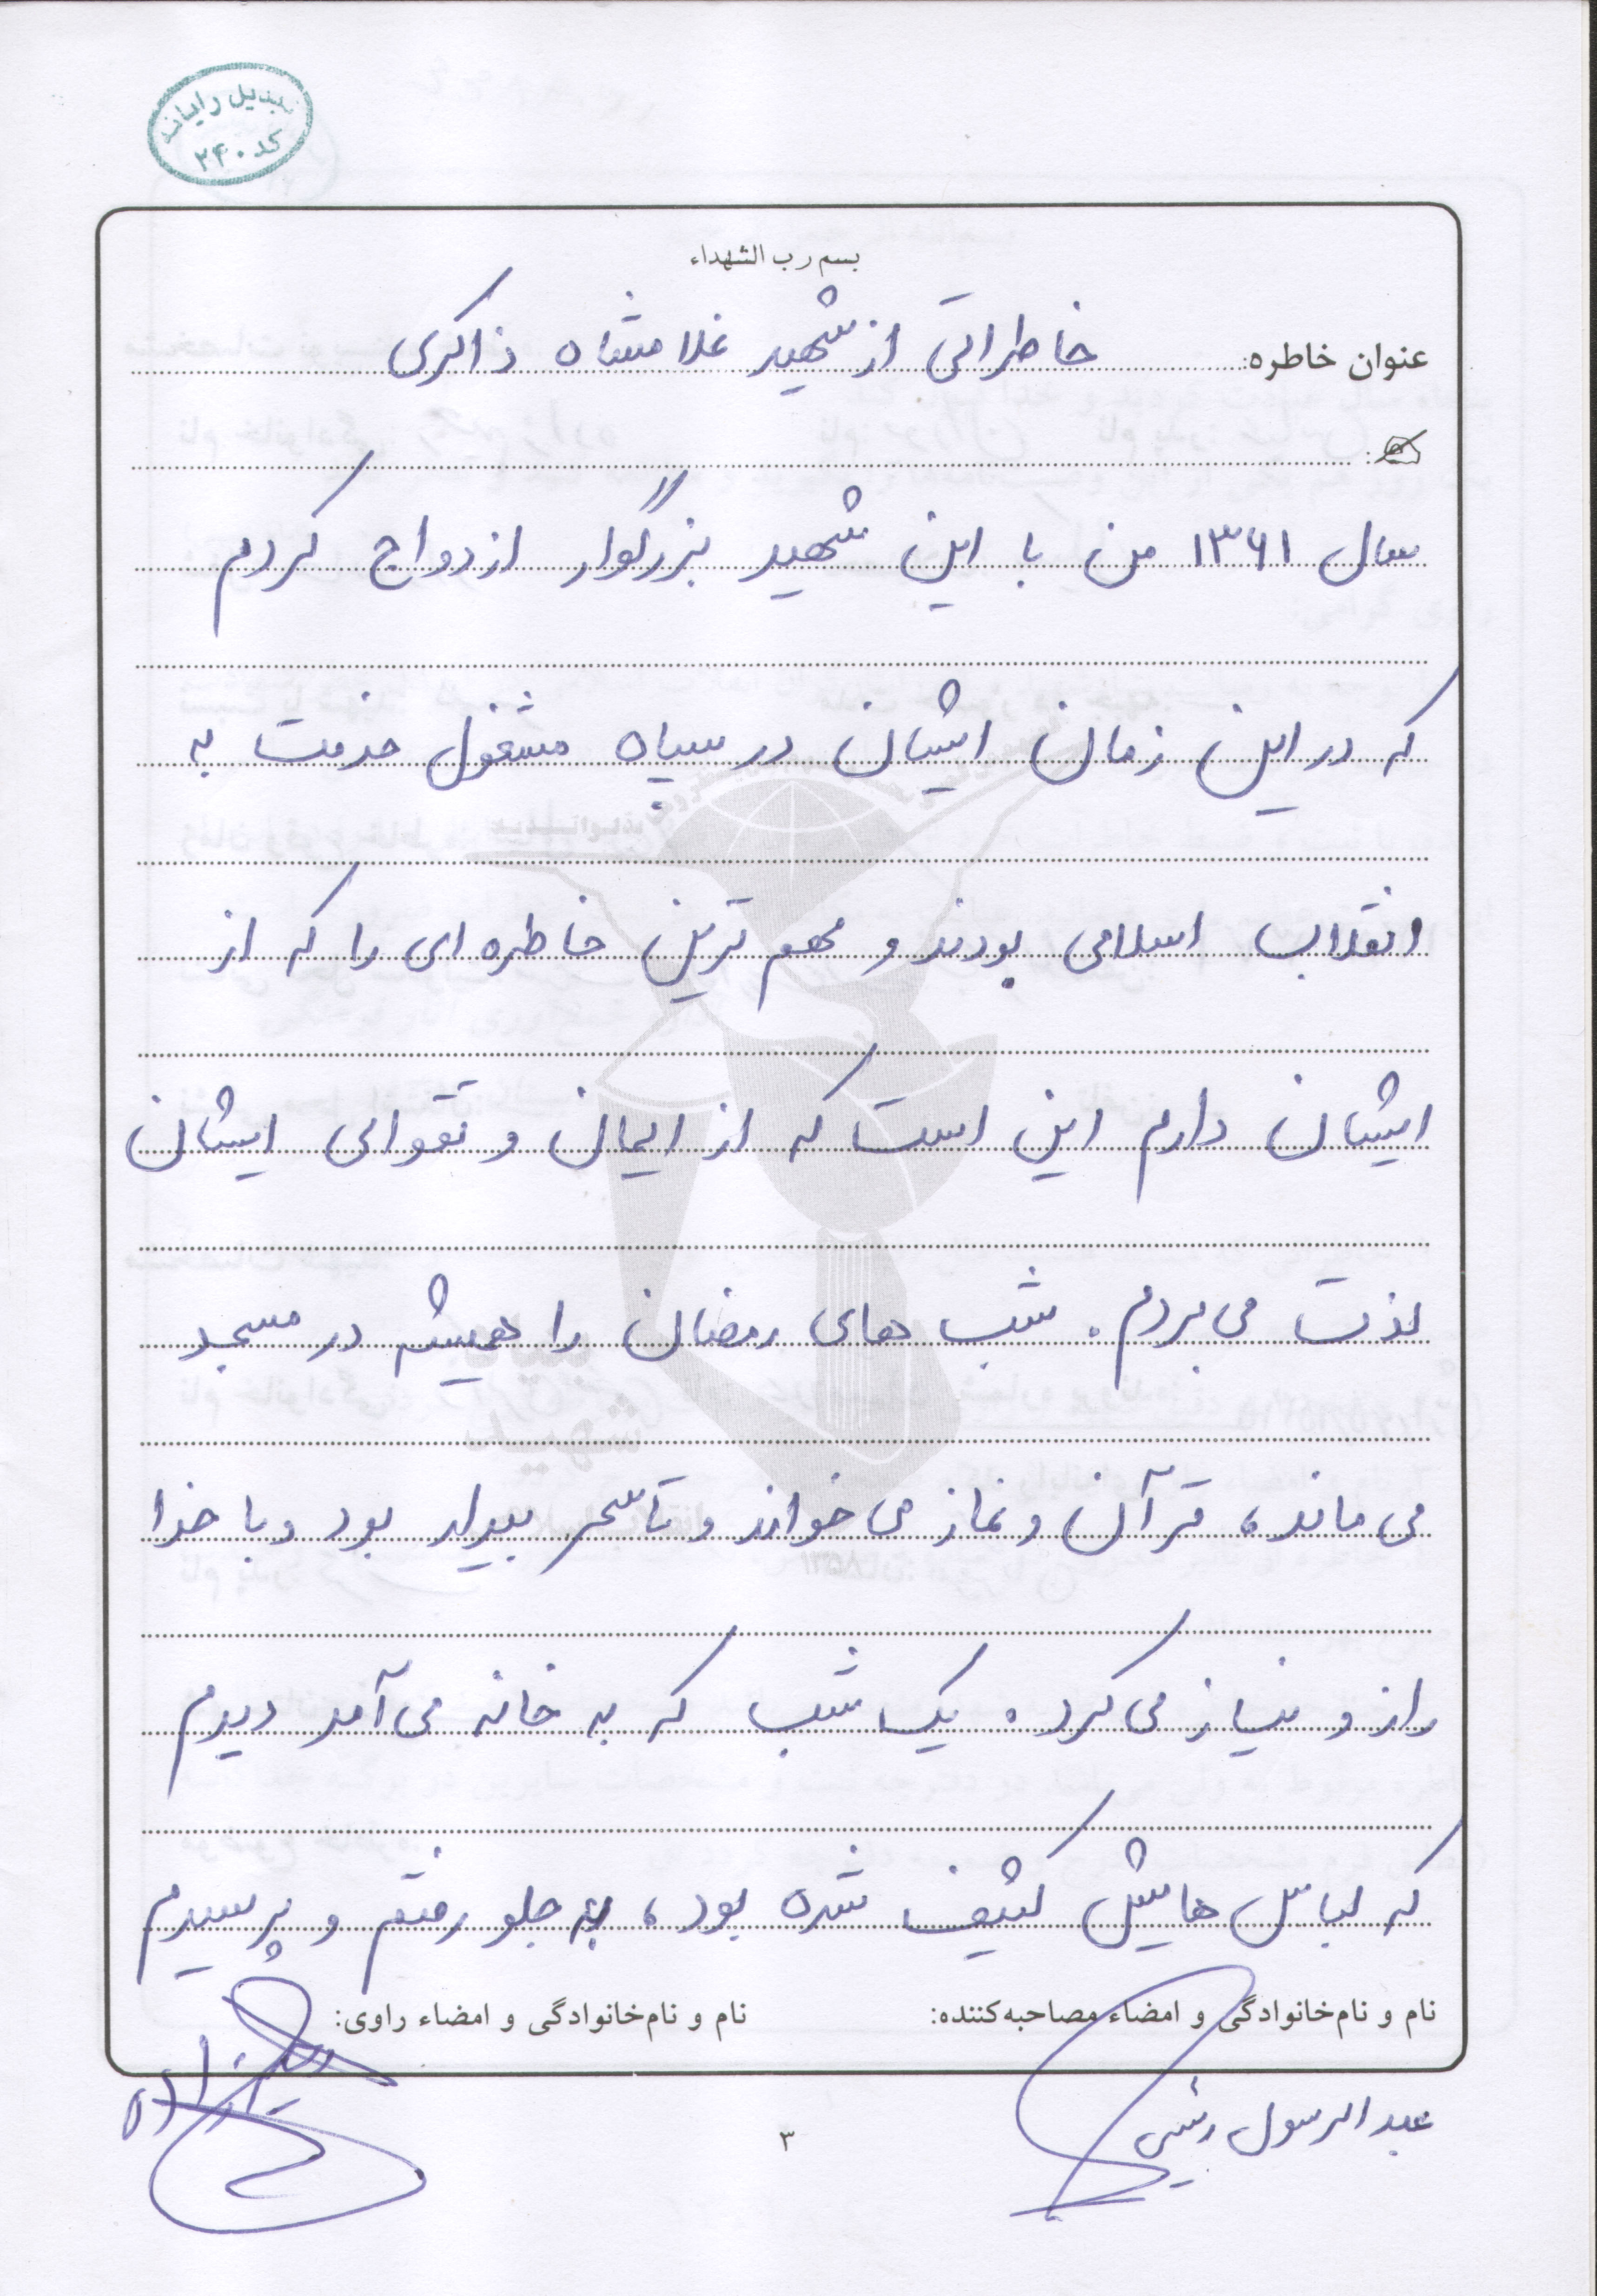 تبدیل رایانه
کد ۲۴۰
بسم رب الشهداء
عنوان خاطره: خاطراتی از شهید غلامشاه ذاکری
سال ۱۳۶۱ من با این شهید بزرگوار ازدواج کردم
که در این زمان ایشان در سپاه مشغول خدمت به
انقلاب اسلامی بودند و مهم ترین خاطره ای را که از
ایشان دارم این است که از ایمان و تقوای ایشان
لذت می بردم . شب های رمضان را همیشه در مسجد
می ماند ، قرآن و نماز می خواند و تا سحر بیدار بود و با خدا
راز و نیاز می کرد . یک شب که به خانه می آمد دیدم
که لباس هایش کثیف شده بود ، به جلو رفتم و پرسیدم
نام و نام‌خانوادگی و امضاء مصاحبه‌کننده: نام و نام‌خانوادگی و امضاء راوی:
عبدالرسول
۳